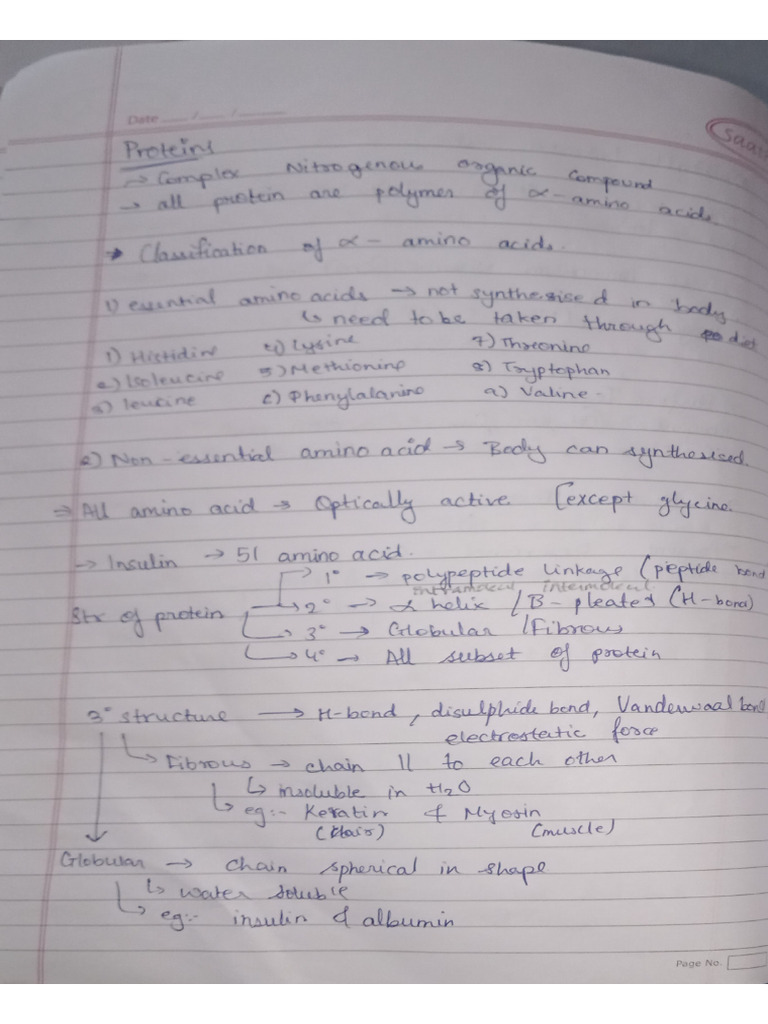 Date ___/___/___
Saa
Proteins
→ Complex Nitrogenous organic compound
→ all protein are polymer of α-amino acids.
→ Classification of α-amino acids.
1) essential amino acids → not synthesised in body
↳ need to be taken through diet
1) Histidine 4) Lysine 7) Threonine
2) Isoleucine 5) Methionine 8) Tryptophan
3) leucine 6) Phenylalanine 9) Valine
2) Non-essential amino acid → Body can synthesised.
→ All amino acid → Optically active [except glycine.
→ Insulin → 51 amino acid.
→ 1° → polypeptide linkage (pieptide bond
intramolecul intermolecul
Str of protein → 2° → α helix / B-pleated (H-bond)
→ 3° → Globular / Fibrous
→ 4° → All subset of protein
3° structure → H-bond, disulphide bond, Vanderwaal bond
electrostatic force
↳ Fibrous → chain || to each other
↳ insoluble in H2O
↳ eg:- Keratin & Myosin
(Hair) (muscle)
Globular → chain spherical in shape
↳ water soluble
↳ eg:- insulin & albumin
Page No.